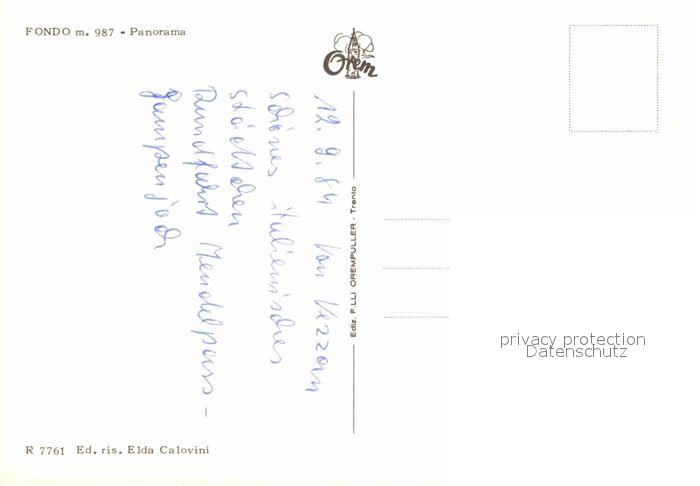 FONDO m. 987 - Panorama
Orem
12. 9. 84 Von
schönes italienisches
städtchen
Rundfahrt Mendelpass –
Gampenjoch
Ediz. F.LLI OREMPULLER - Trento
privacy protection
Datenschutz
R 7761 Ed. ris. Elda Calovini